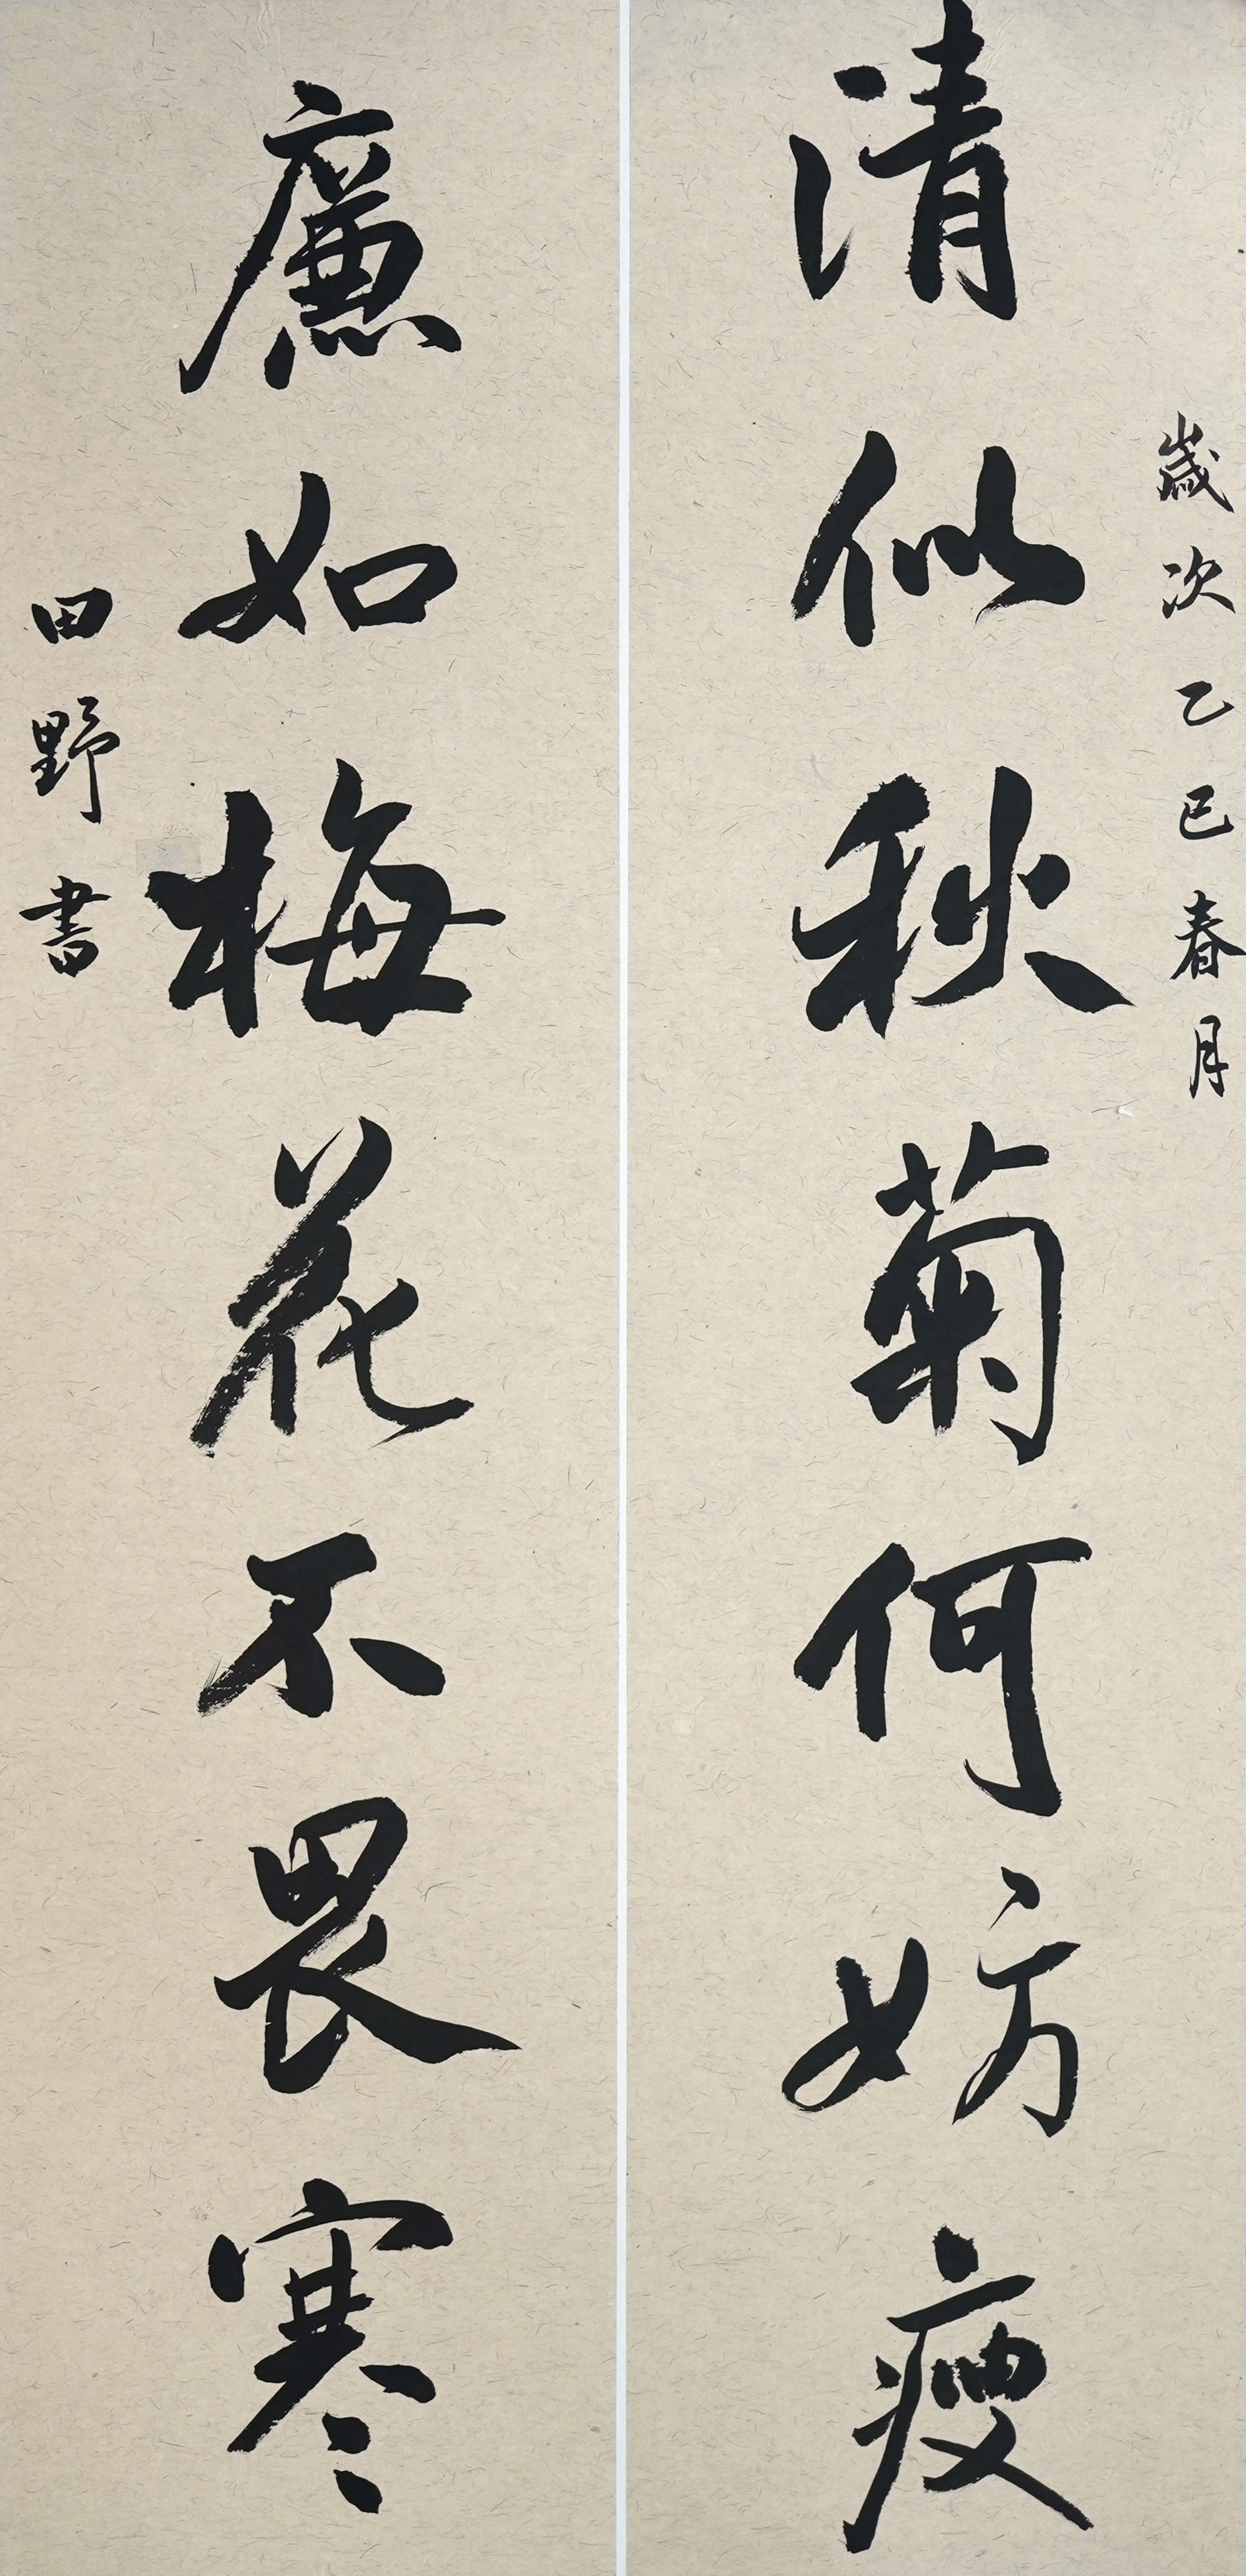 歲次乙巳春月
清似秋菊何妨瘦
廉如梅花不畏寒
田野書